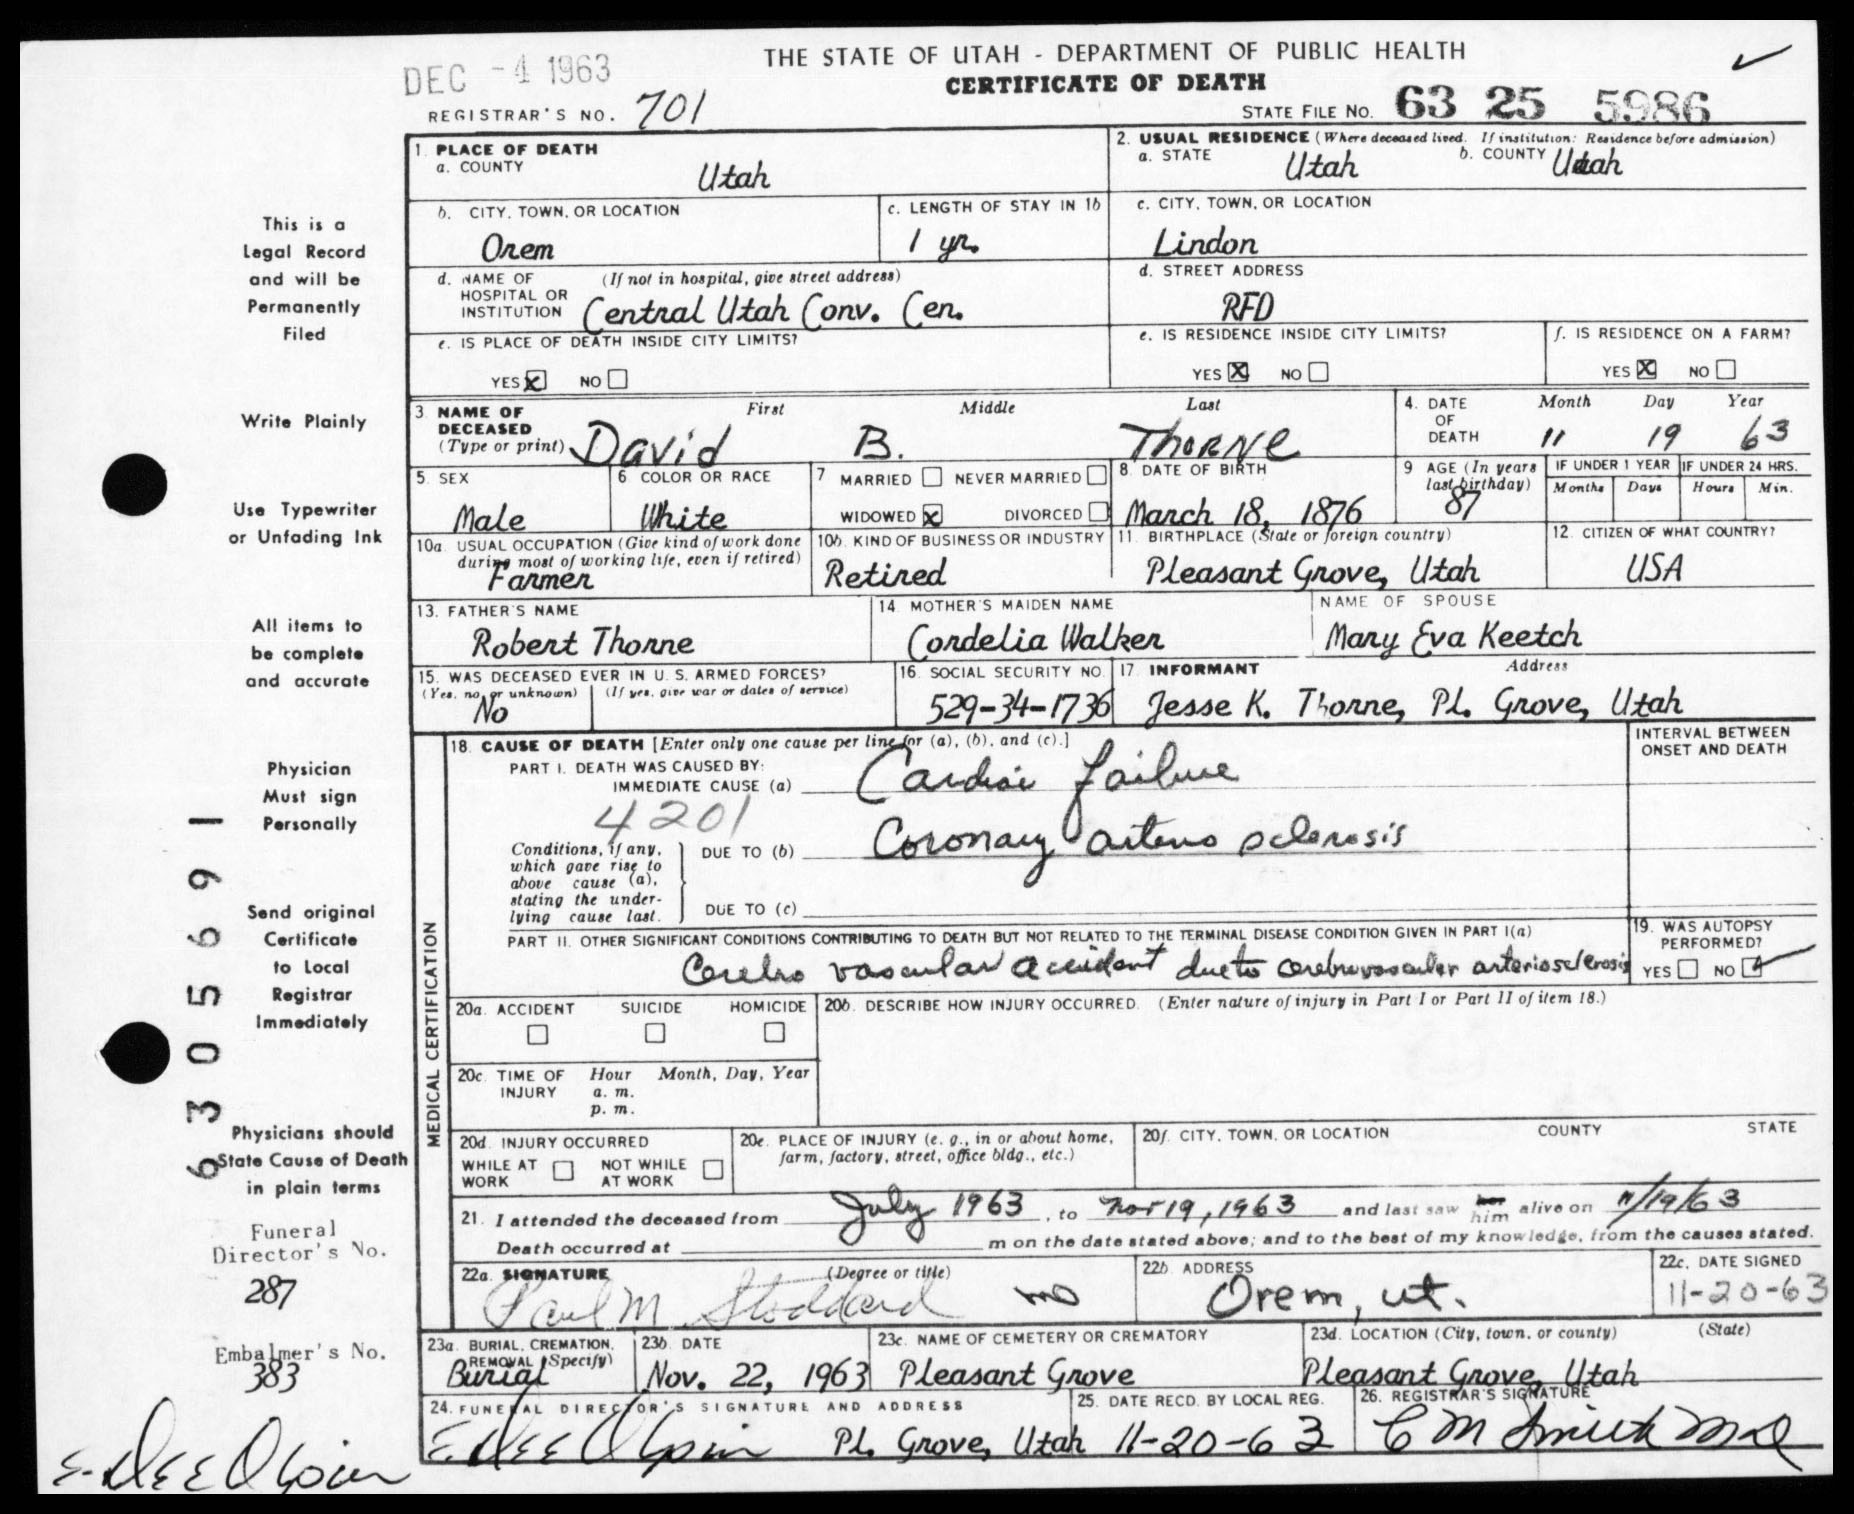 THE STATE OF UTAH - DEPARTMENT OF PUBLIC HEALTH
CERTIFICATE OF DEATH
DEC -4 1963
REGISTRAR'S NO. 701
STATE FILE NO. 63 25 5986
This is a
Legal Record
and will be
Permanently
Filed
Write Plainly
Use Typewriter
or Unfading Ink
All items to
be complete
and accurate
Physician
Must sign
Personally
Send original
Certificate
to Local
Registrar
Immediately
Physicians should
State Cause of Death
in plain terms
Funeral
Director's No.
287
Embalmer's No.
383
E. Dee Olpin
6305691
1. PLACE OF DEATH
a. COUNTY
Utah
2. USUAL RESIDENCE (Where deceased lived. If institution: Residence before admission)
a. STATE Utah b. COUNTY Utah
b. CITY, TOWN, OR LOCATION
Orem
c. LENGTH OF STAY IN 1b
1 yr.
c. CITY, TOWN, OR LOCATION
Lindon
d. NAME OF (If not in hospital, give street address)
HOSPITAL OR
INSTITUTION Central Utah Conv. Cen.
d. STREET ADDRESS
RFD
e. IS PLACE OF DEATH INSIDE CITY LIMITS?
YES X NO
e. IS RESIDENCE INSIDE CITY LIMITS?
YES X NO
f. IS RESIDENCE ON A FARM?
YES X NO
3. NAME OF DECEASED (Type or print)
First Middle Last
David B. Thorne
4. DATE OF DEATH
Month Day Year
11 19 63
5. SEX
Male
6 COLOR OR RACE
White
7 MARRIED NEVER MARRIED
WIDOWED X DIVORCED
8. DATE OF BIRTH
March 18, 1876
9 AGE (In years last birthday)
87
IF UNDER 1 YEAR IF UNDER 24 HRS.
Months Days Hours Min.
10a. USUAL OCCUPATION (Give kind of work done during most of working life, even if retired)
Farmer
10b. KIND OF BUSINESS OR INDUSTRY
Retired
11. BIRTHPLACE (State or foreign country)
Pleasant Grove, Utah
12. CITIZEN OF WHAT COUNTRY?
USA
13. FATHER'S NAME
Robert Thorne
14. MOTHER'S MAIDEN NAME
Cordelia Walker
NAME OF SPOUSE
Mary Eva Keetch
15. WAS DECEASED EVER IN U. S. ARMED FORCES?
(Yes, no, or unknown) (If yes, give war or dates of service)
No
16. SOCIAL SECURITY NO.
529-34-1736
17. INFORMANT Address
Jesse K. Thorne, Pl. Grove, Utah
MEDICAL CERTIFICATION
18. CAUSE OF DEATH [Enter only one cause per line for (a), (b), and (c).]
INTERVAL BETWEEN
ONSET AND DEATH
PART I. DEATH WAS CAUSED BY:
IMMEDIATE CAUSE (a) Cardiac failure
4201
Conditions, if any,
which gave rise to
above cause (a),
stating the under-
lying cause last.
DUE TO (b) Coronary arterio sclerosis
DUE TO (c)
PART II. OTHER SIGNIFICANT CONDITIONS CONTRIBUTING TO DEATH BUT NOT RELATED TO THE TERMINAL DISEASE CONDITION GIVEN IN PART I(a)
Cerebro vascular accident due to cerebrovascular arteriosclerosis
19. WAS AUTOPSY
PERFORMED?
YES NO
20a. ACCIDENT SUICIDE HOMICIDE
20b. DESCRIBE HOW INJURY OCCURRED. (Enter nature of injury in Part I or Part II of item 18.)
20c. TIME OF INJURY Hour Month, Day, Year
a. m.
p. m.
20d. INJURY OCCURRED
WHILE AT WORK NOT WHILE AT WORK
20e. PLACE OF INJURY (e. g., in or about home,
farm, factory, street, office bldg., etc.)
20f. CITY, TOWN, OR LOCATION COUNTY STATE
21. I attended the deceased from July 1963, to Nov 19, 1963 and last saw her him alive on 11/19/63
Death occurred at m on the date stated above; and to the best of my knowledge, from the causes stated.
22a. SIGNATURE (Degree or title)
Paul M. Stoddard MD
22b. ADDRESS
Orem, Ut.
22c. DATE SIGNED
11-20-63
23a. BURIAL, CREMATION,
REMOVAL (Specify)
Burial
23b. DATE
Nov. 22, 1963
23c. NAME OF CEMETERY OR CREMATORY
Pleasant Grove
23d. LOCATION (City, town, or county) (State)
Pleasant Grove, Utah
24. FUNERAL DIRECTOR'S SIGNATURE AND ADDRESS
E. Dee Olpin Pl. Grove, Utah
25. DATE RECD. BY LOCAL REG.
11-20-63
26. REGISTRAR'S SIGNATURE
C M Smith MD